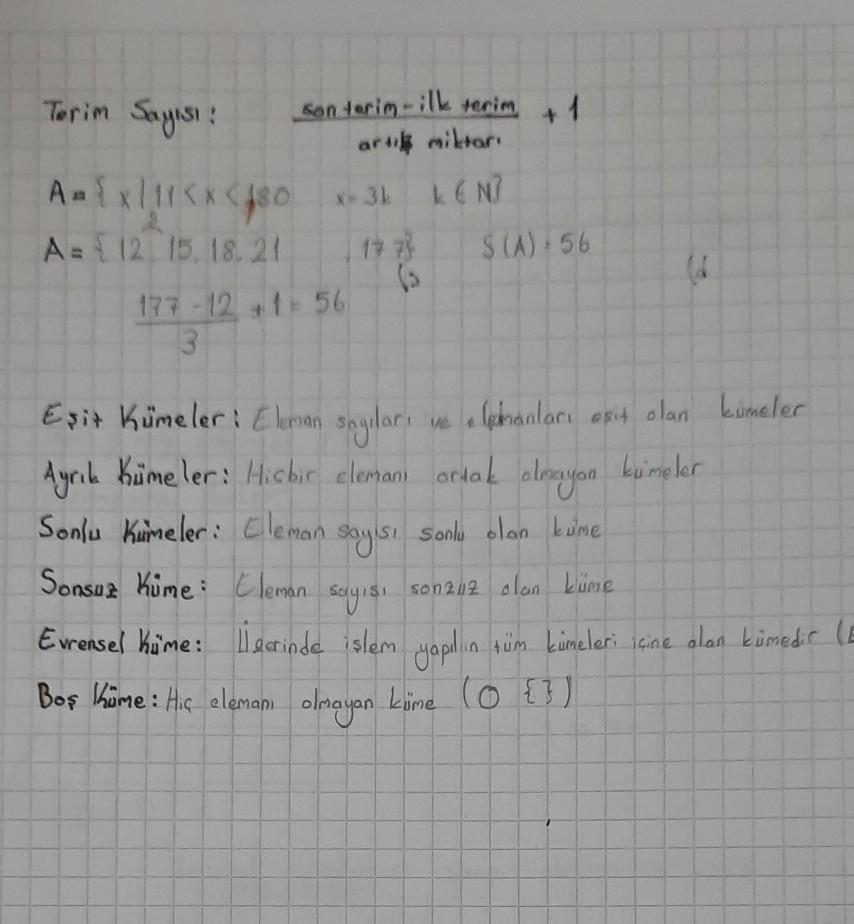 Terim Sayısı: son terim - ilk terim / artış miktarı + 1
A = { x | 11 < x < 180 x = 3k k ∈ N}
A = { 12, 15, 18, 21 , 177} S(A) = 56
177 - 12 / 3 + 1 = 56
Eşit Kümeler: Eleman sayıları ve elemanları eşit olan kümeler
Ayrık Kümeler: Hicbir elemanı ortak olmayan kümeler
Sonlu Kümeler: Eleman sayısı sonlu olan küme
Sonsuz Küme: Eleman sayısı sonzuz olan küme
Evrensel Küme: Üzerinde işlem yapılın tüm kümeleri içine alan kümedir (E
Boş Küme: Hiç elemanı olmayan küme (O {})